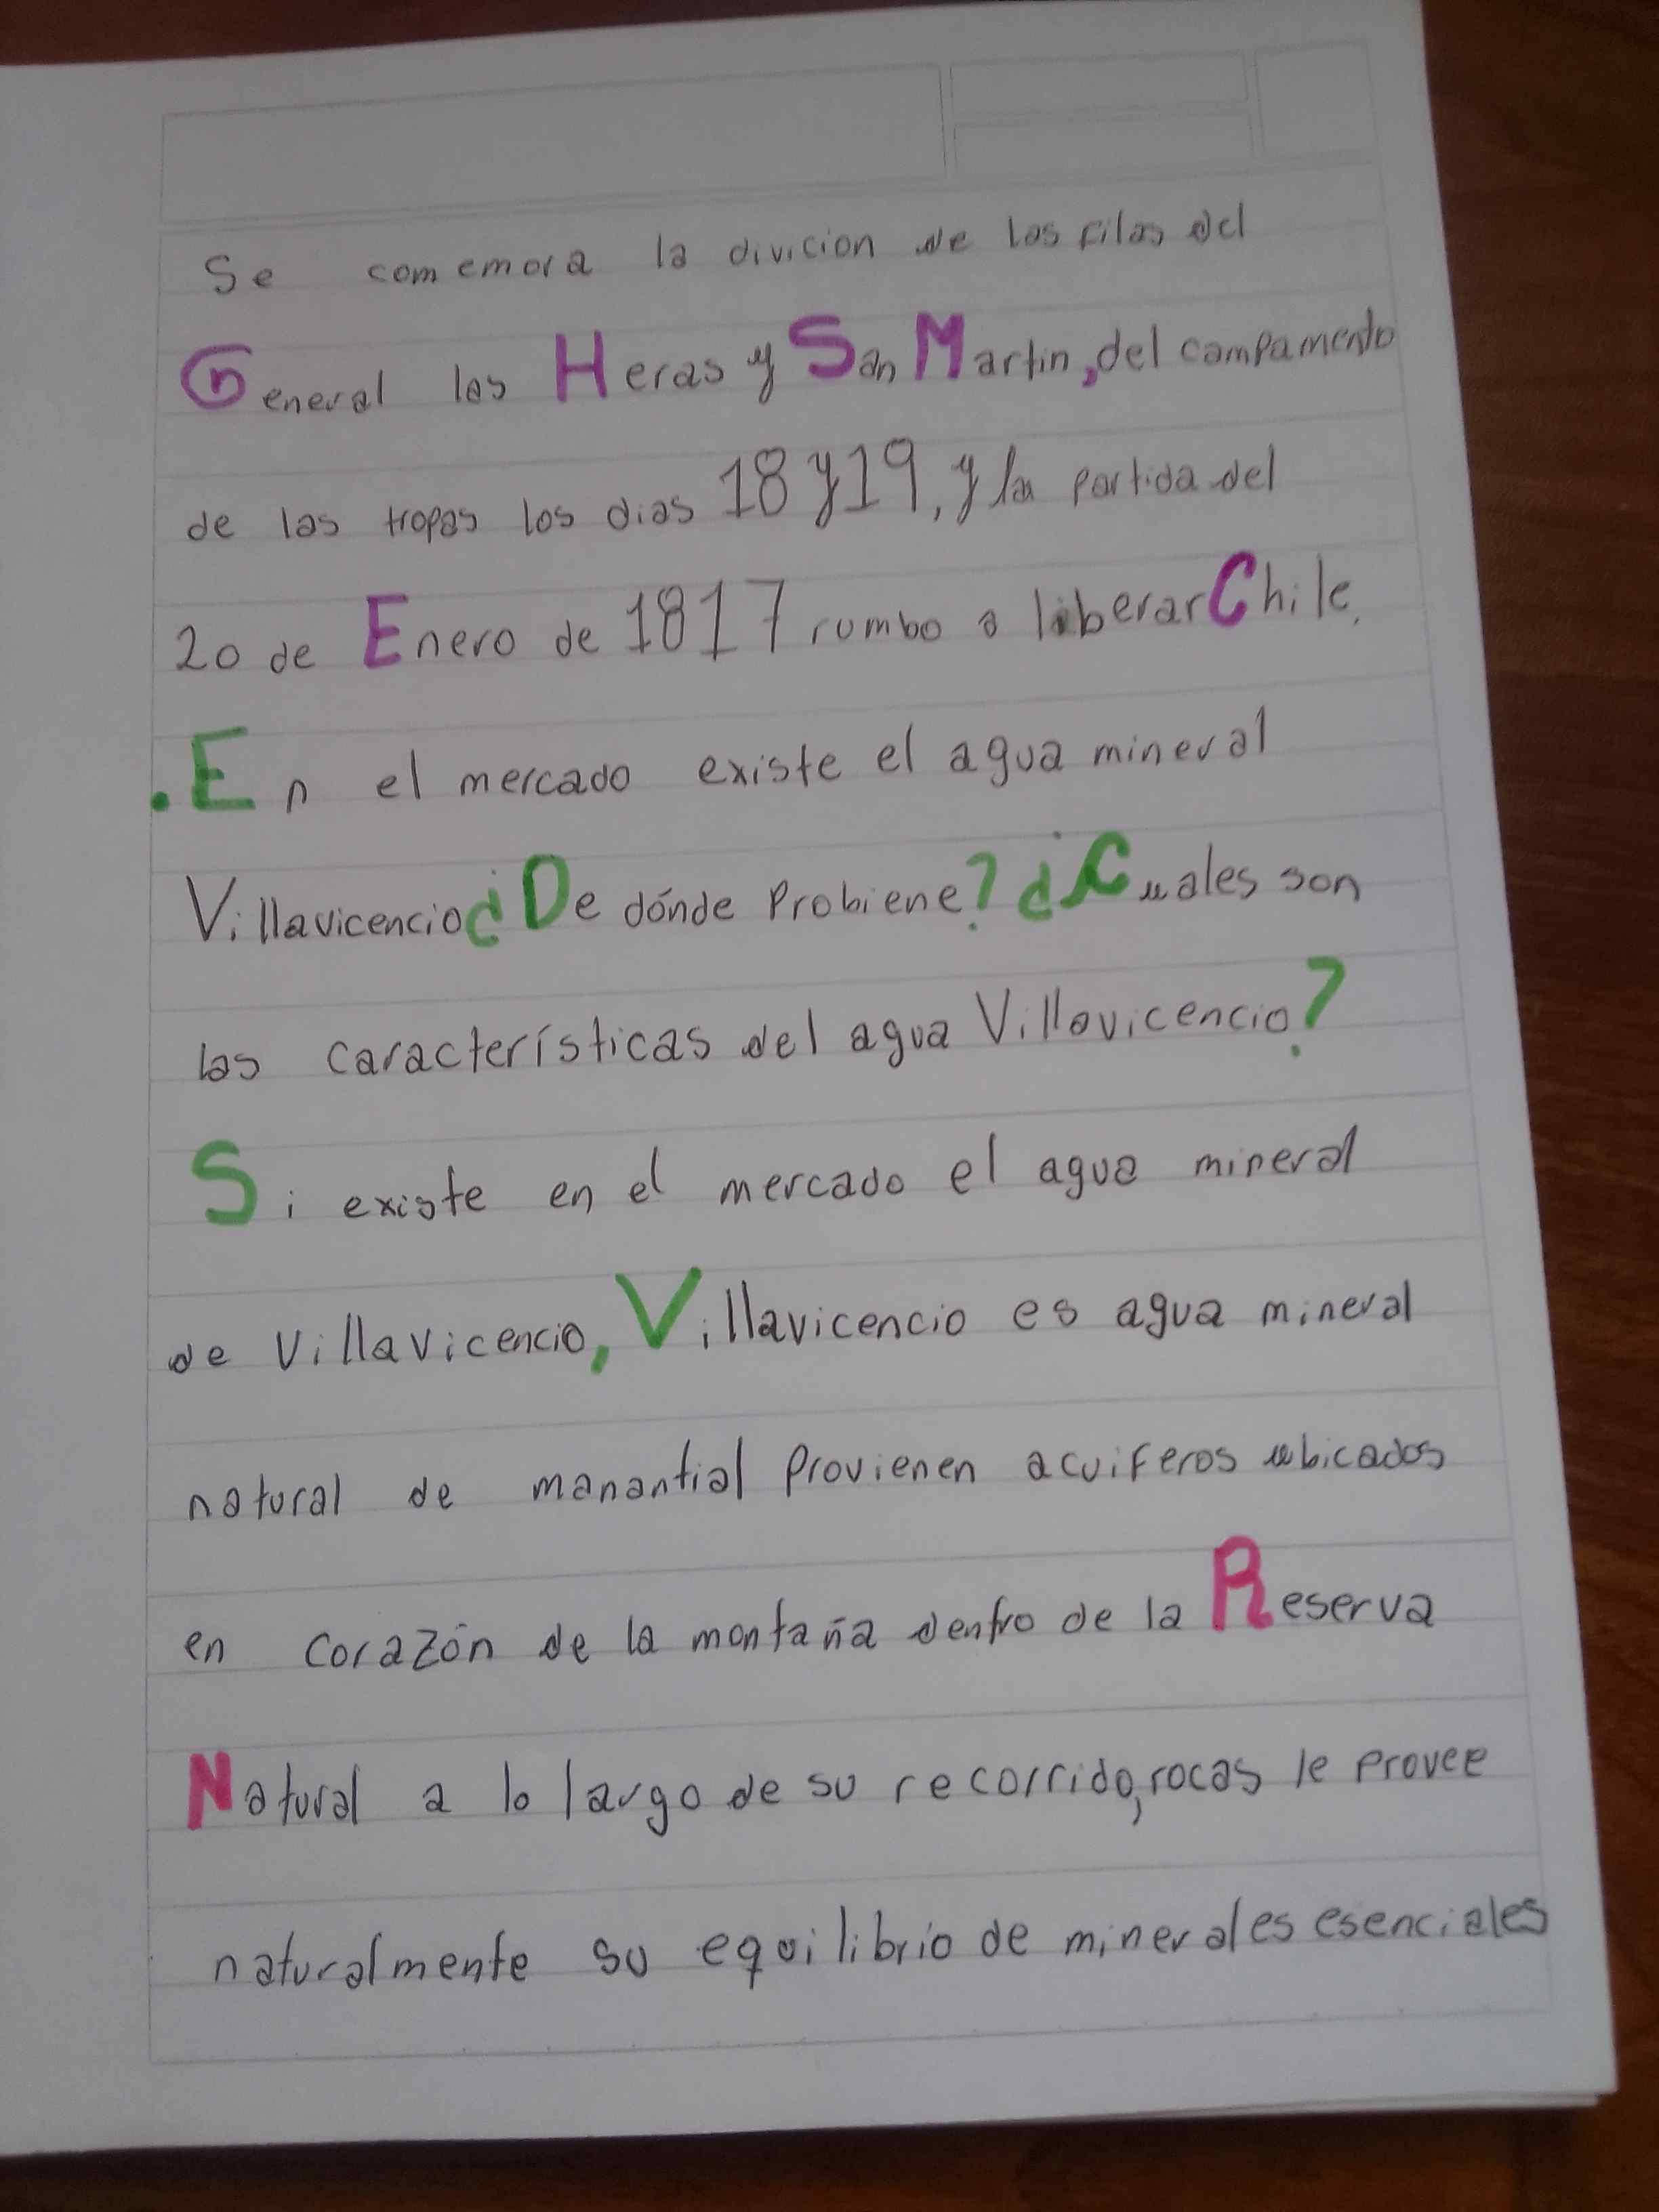 Se comemora la divicion de las filas del
General las Heras y San Martin, del campamento
de las tropas los dias 18 y 19, y la partida del
20 de Enero de 1817 rumbo a liberar Chile.
. En el mercado existe el agua mineral
Villavicencio ¿De dónde Probiene? ¿Cuales son
las características del agua Villavicencio?
Si existe en el mercado el agua mineral
de Villavicencio, Villavicencio es agua mineral
natural de manantial Provienen acuiferos ubicados
en corazón de la montaña dentro de la Reserva
Natural a lo largo de su recorrido, rocas le provee
naturalmente su equilibrio de minerales esenciales